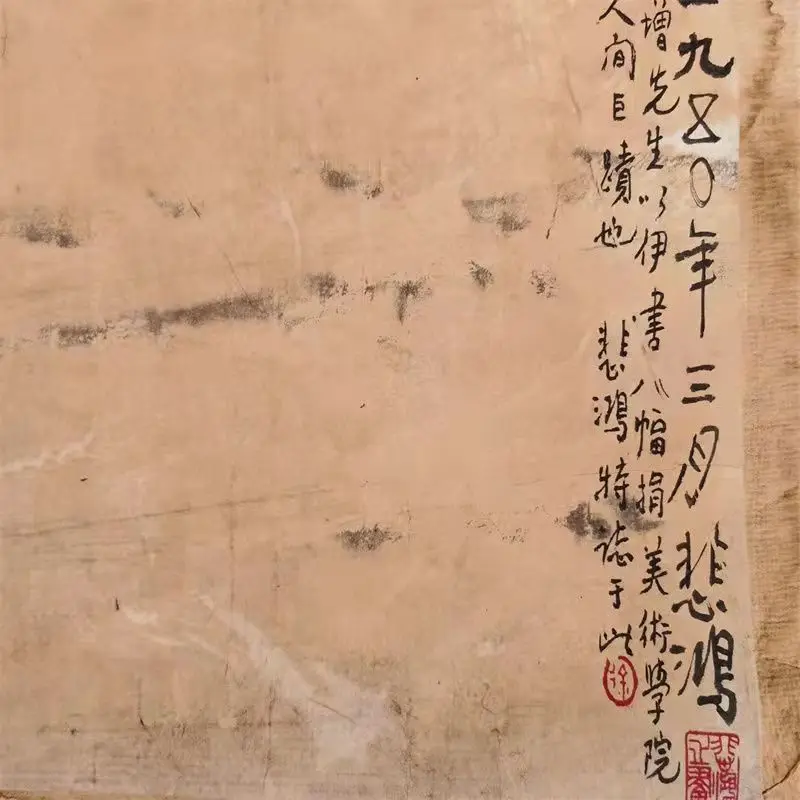 一九五〇年三月悲鴻
增先生以伊書八幅捐美術學院
人间巨蹟也　悲鴻特誌于此
徐